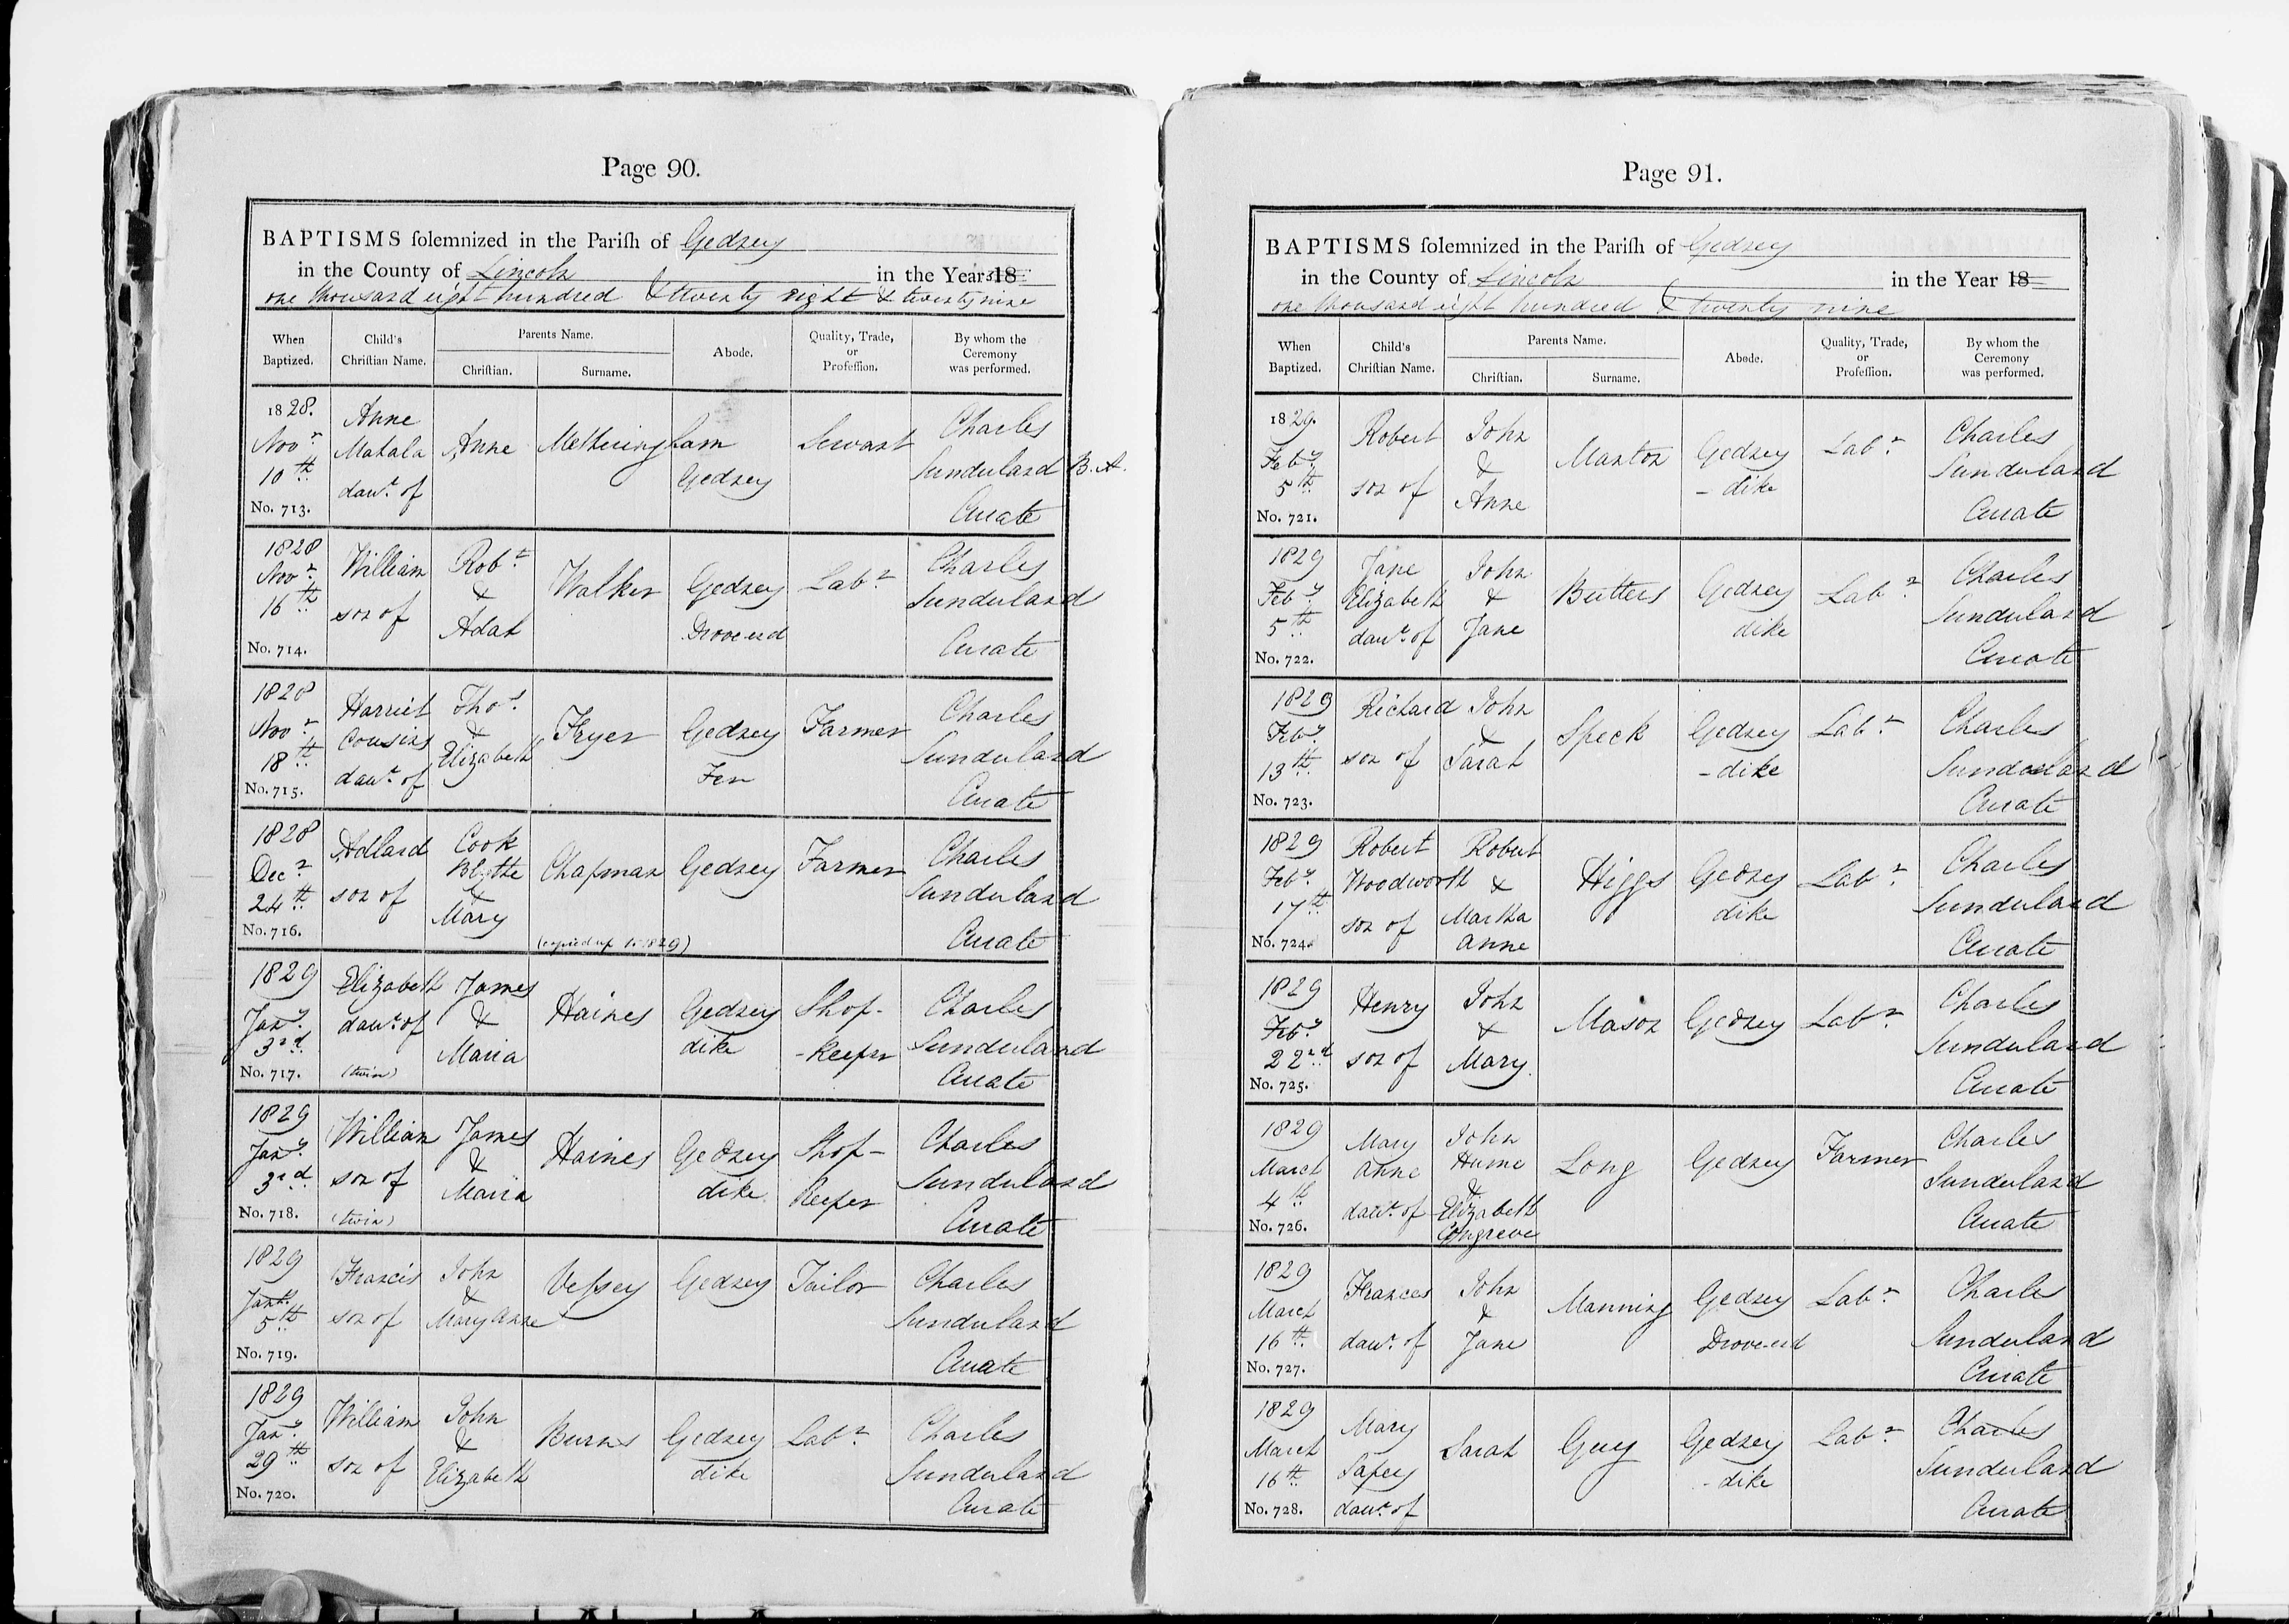 Page 90.
BAPTISMS ſolemnized in the Pariſh of Gedney
in the County of Lincoln in the Year 18
one thousand eight hundred & twenty eight & twenty nine
When Baptized.
Child's Chriſtian Name.
Parents Name.
Chriſtian.
Surname.
Abode.
Quality, Trade, or Profeſſion.
By whom the Ceremony was performed.
1828. Novr 10th No. 713.
Anne Matala daur. of
Anne
Metheringham
Gedney
Servant
Charles Sunderland B.A. Curate
1828 Novr 16th No. 714.
William son of
Robt & Adah
Walker
Gedney Drove end
Labr
Charles Sunderland Curate
1828 Novr 18th No. 715.
Harriet Cousins daur. of
Thos. & Elizabeth
Fryer
Gedney Fen
Farmer
Charles Sunderland Curate
1828 Decr 24th No. 716.
Adlard son of
Cook Blythe & Mary
Chapman
(copied up to 1829)
Gedney
Farmer
Charles Sunderland Curate
1829 Jany. 3rd No. 717.
Elizabeth daur. of (twin)
James & Maria
Haines
Gedney dike
Shop- -keeper
Charles Sunderland Curate
1829 Jany. 3rd No. 718.
William son of (twin)
James & Maria
Haines
Gedney dike
Shop- keeper
Charles Sunderland Curate
1829 Jany. 5th No. 719.
Francis son of
John & Mary Anne
Veſsey
Gedney
Tailor
Charles Sunderland Curate
1829 Jany. 29th No. 720.
William son of
John & Elizabeth
Burns
Gedney dike
Labr
Charles Sunderland Curate
Page 91.
BAPTISMS ſolemnized in the Pariſh of Gedney
in the County of Lincoln in the Year 18
one thousand eight hundred & twenty nine
When Baptized.
Child's Chriſtian Name.
Parents Name.
Chriſtian.
Surname.
Abode.
Quality, Trade, or Profeſſion.
By whom the Ceremony was performed.
1829. Feby. 5th No. 721.
Robert son of
John & Anne
Manton
Gedney - dike
Labr
Charles Sunderland Curate
1829 Feby 5th No. 722.
Jane Elizabeth daur. of
John & Jane
Butters
Gedney dike
Labr
Charles Sunderland Curate
1829 Feby 13th No. 723.
Richard son of
John & Sarah
Speck
Gedney -dike
Labr
Charles Sunderland Curate
1829 Feby. 17th No. 724.
Robert Woodworth son of
Robert & Martha Anne
Higgs
Gedney dike
Labr
Charles Sunderland Curate
1829 Feby 22nd No. 725.
Henry son of
John & Mary
Mason
Gedney
Labr
Charles Sunderland Curate
1829 March 4th No. 726.
Mary Anne daur. of
John Hume & Elizabeth Congreve
Long
Gedney
Farmer
Charles Sunderland Curate
1829 March 16th No. 727.
Frances daur. of
John & Jane
Manning
Gedney Drove-end
Labr
Charles Sunderland Curate
1829 March 16th No. 728.
Mary daur. of
Sarah
Guy
Gedney - dike
Labr
Charles Sunderland Curate